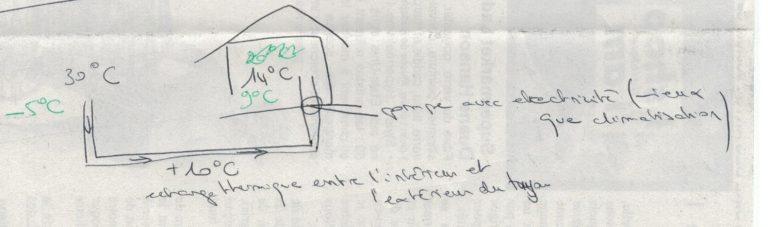 30°C
14°C
-5°C
9°C
pompe avec electricité (mieux
que climatisation)
+10°C
echange thermique entre l'intérieur et
l'extérieur du tuyau